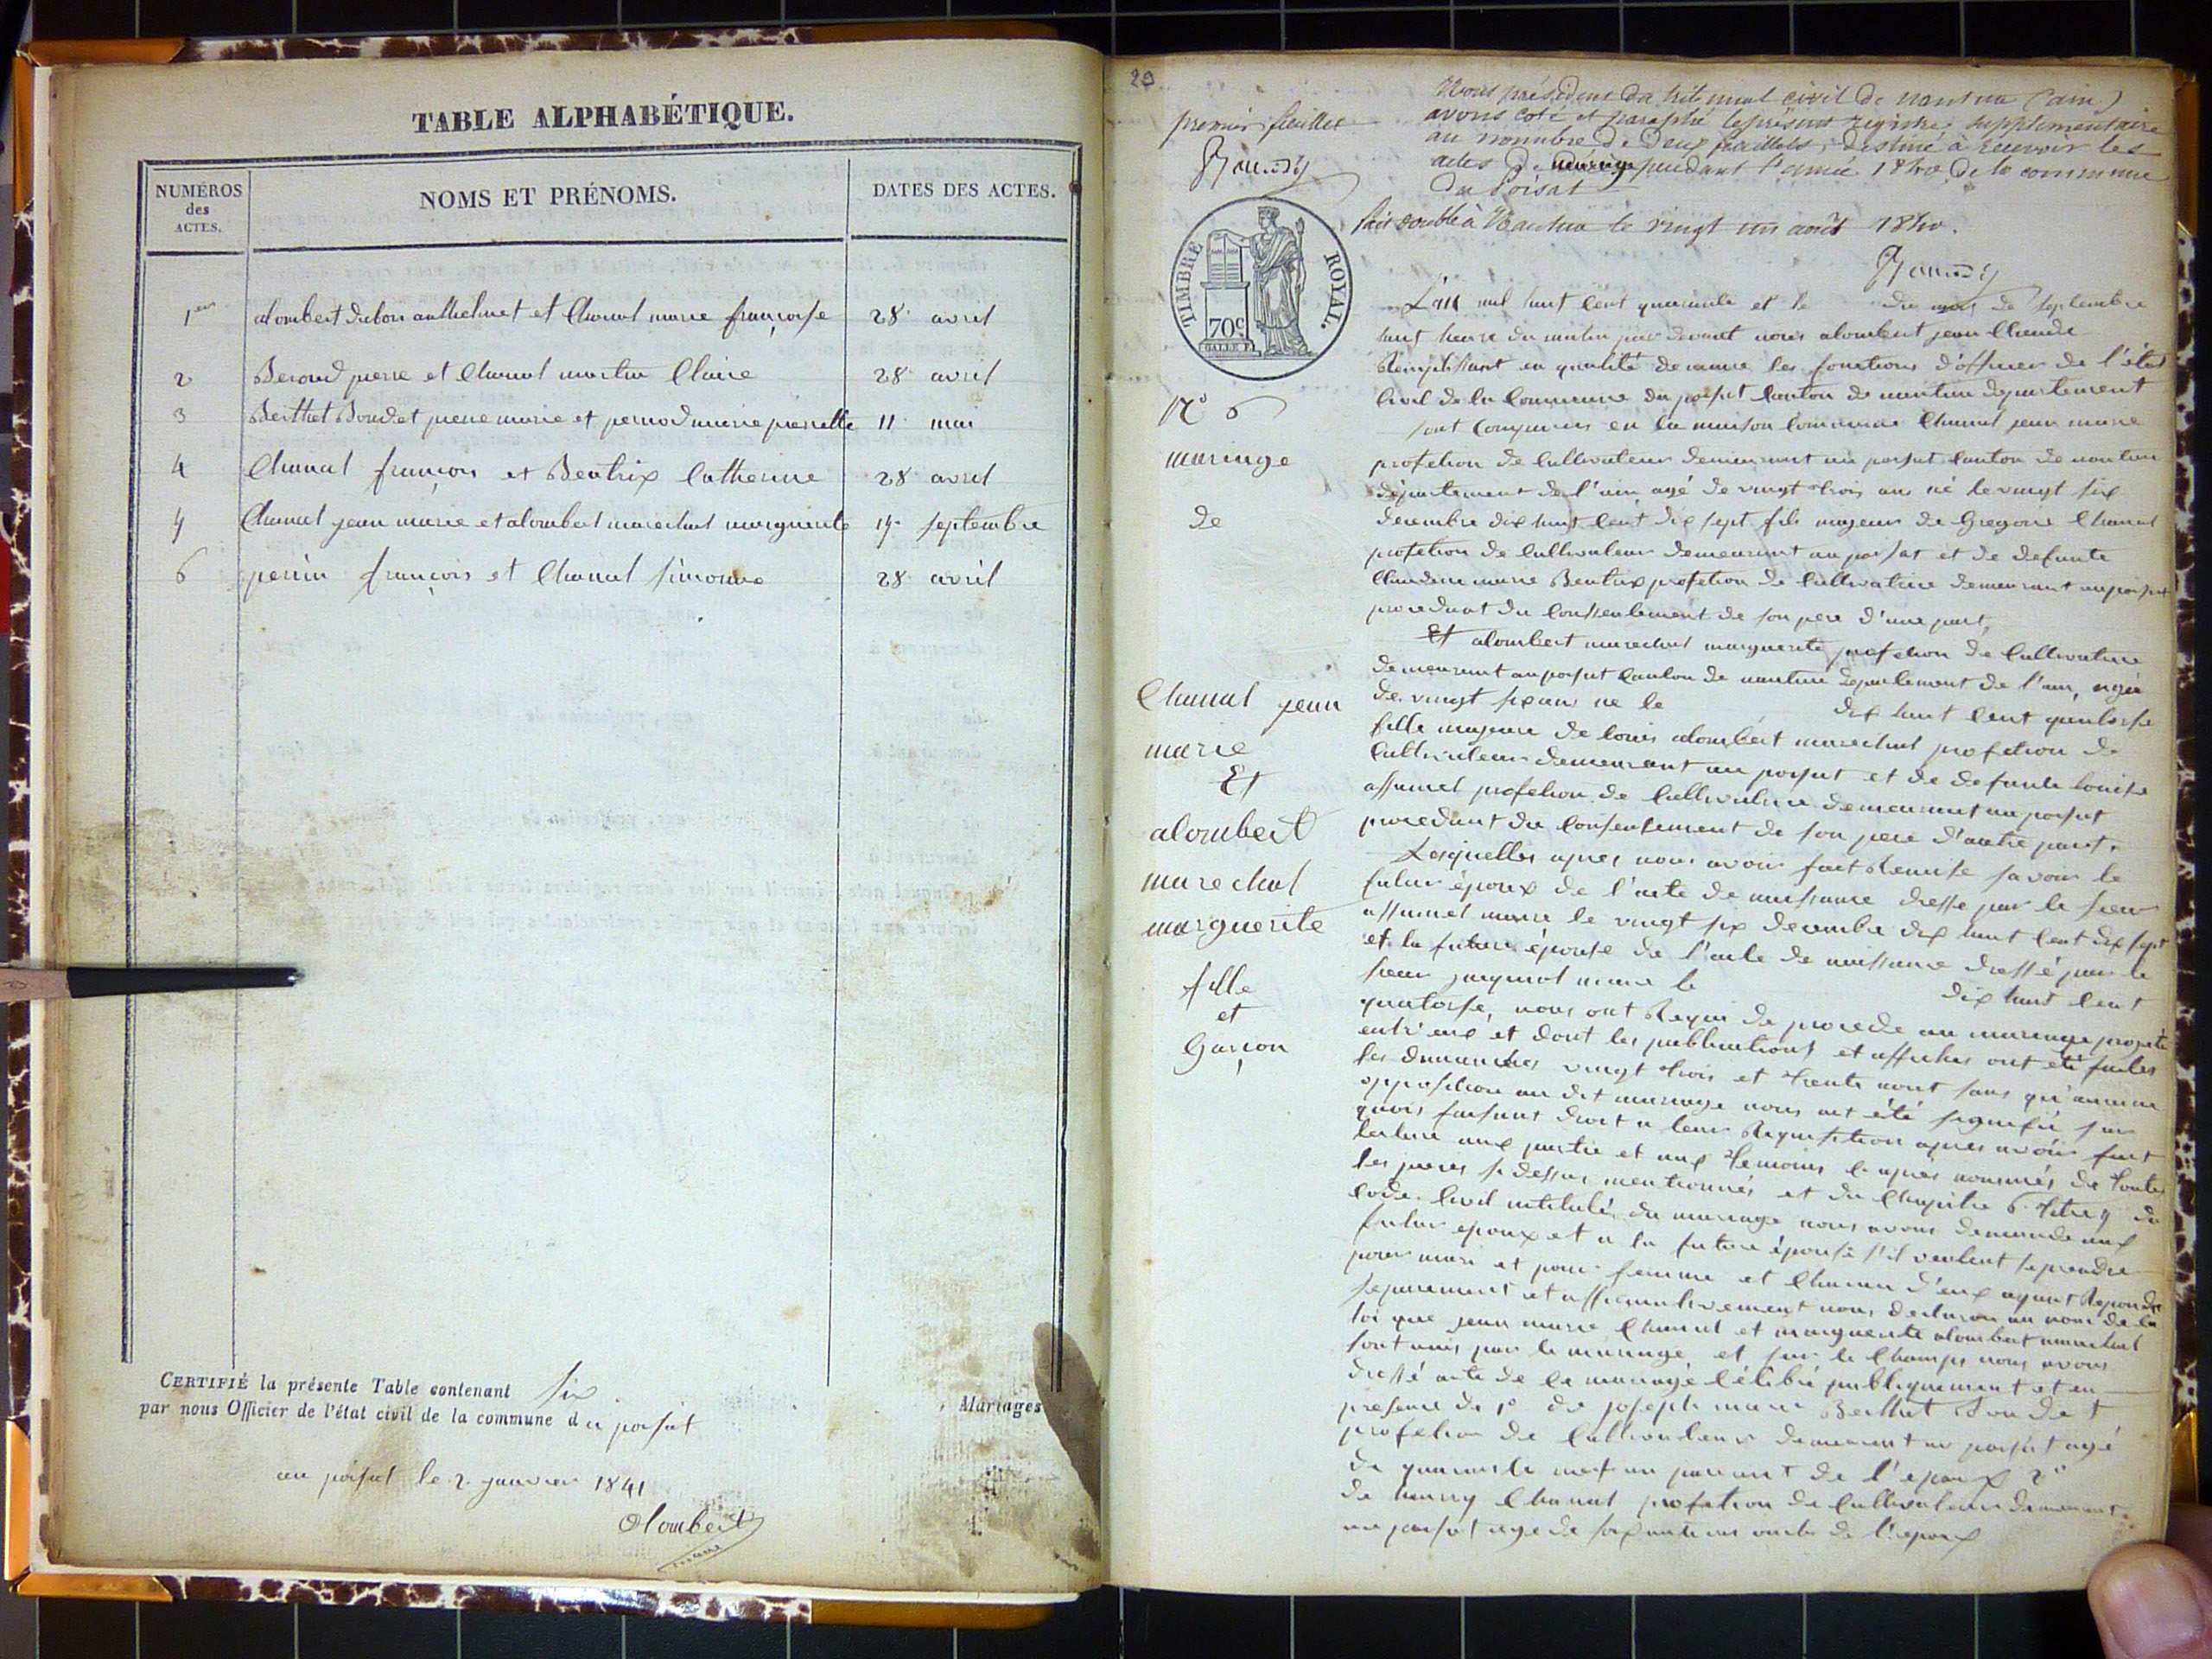 TABLE ALPHABÉTIQUE.
NUMÉROS
des
ACTES.
NOMS ET PRÉNOMS.
DATES DES ACTES.
1er alombert dubois anthelmet et Chanal marie françoise 28 avril
2 Beroud pierre et Chanal martin Claire 28 avril
3 Berthet Bondet pierre marie et pernod marie pierrette 11 mai
4 Chanal françois et Beatrix Catherine 28 avril
5 Chanal jean marie et alombert marechal marguerite septembre
6 perrin françois et Chanal simonne 28 avril
CERTIFIÉ la présente Table contenant six Mariages
par nous Officier de l'état civil de la commune du poisat
au poisat le 2 janvier 1841
alombert
maire
29
premier feuillet
Nous président du tribunal civil de nantua (ain)
avons coté et paraphé le présent registre supplémentaire
au nombre de deux feuillets, destiné à recevoir les
actes de mariage pendant l'année 1840 de la commune
du Poisat
fait double à Nantua le vingt un août 1840.
TIMBRE ROYAL.
70c
N° 6
mariage
de
Chanal jean
marie
Et
alombert
marechal
marguerite
fille
et
Garçon
L'an mil huit cent quarante et le du mois de septembre
huit heure du matin par devant nous alombert jean Claude
Remplissant en qualité de maire les fonctions d'officier de l'état
Civil de la Commune du poisat Canton de nantua departement
sont Comparus en la maison Commune Chanal jean marie
profetion de Cultivateur demeurant au poisat Canton de nantua
département de l'ain, agé de vingt trois ans né le vingt six
decembre dix huit Cent dix sept fils majeur de Gregoire Chanal
profetion de Cultivateur demeurant au poisat et de defunte
Claudine marie Beatrix profetion de Cultivatrice demeurant au poisat
procedant du Consentement de son pere d'une part,
Et alombert marechal marguerite profetion de Cultivatrice
demeurant au poisat Canton de nantua departement de l'ain, agée
de vingt six ans ne le dix huit Cent quatorse
fille majeure de louis alombert marechal profetion de
Cultivateur demeurant au poisat et de defunte louise
assumel profetion de Cultivatrice demeurant au poisat
procedant du Consentement de son pere d'autre part.
Lesquelles apres nous avoir fait Remise savoir le
futur époux de l'acte de naissance dressé par le sieur
assumel maire le vingt six decembre dix huit Cent dix sept
et la future épouse de l'acte de naissance dressé par le
sieur maire le dix huit Cent
quatorse, nous ont Requi de procede au mariage projeté
entr'eux et dont les publications et affiches ont été faites
les dimanches vingt trois et trente aout sans qu'aucune
opposition au dit mariage nous ait été signifié sur
quois faisant droit a leur Requisition apres avoir fait
lecture aux partie et aux temoins Ci apres nommés de toutes
les pieces si dessus mentionnés et du Chapitre 6 titre 5 du
Code Civil intitulés du mariage nous avons demandé aux
futur epoux et a la future épouse s'il veulent se prendre
pour mari et pour femme et Chacun d'eux ayant Repondu
separement et affirmativement nous declaron au nom de la
loi que jean marie Chanal et marguerite alombert marechal
sont unis par le mariage et sur le Champs nous avons
dressé acte de Ce mariage Célébré publiquement et en
presence de 1° de joseph marie Berthet Bondet
profetion de Cultivateur demeurant au poisat agé
de quarante neuf an parent de l'epoux 2°
de Chanal profetion de Cultivateur demeurant
au poisat age de soixante ans oncle de l'epoux